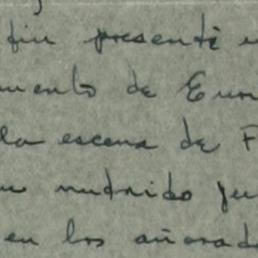 fin presenté
mento de Eur
la escena de F
nudrido
en los añorad